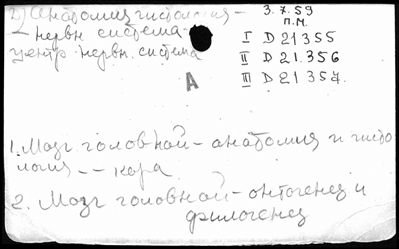 D) Анатомия гистология -
- нервн. система -
центр нервн. система
3.7.59
П.М.
I D 21355
II D 21.356
III D 21357.
А
1. Мозг головной - анатомия и гисто
логия - - кора
2. Мозг головной - онтогенез и
филогенез